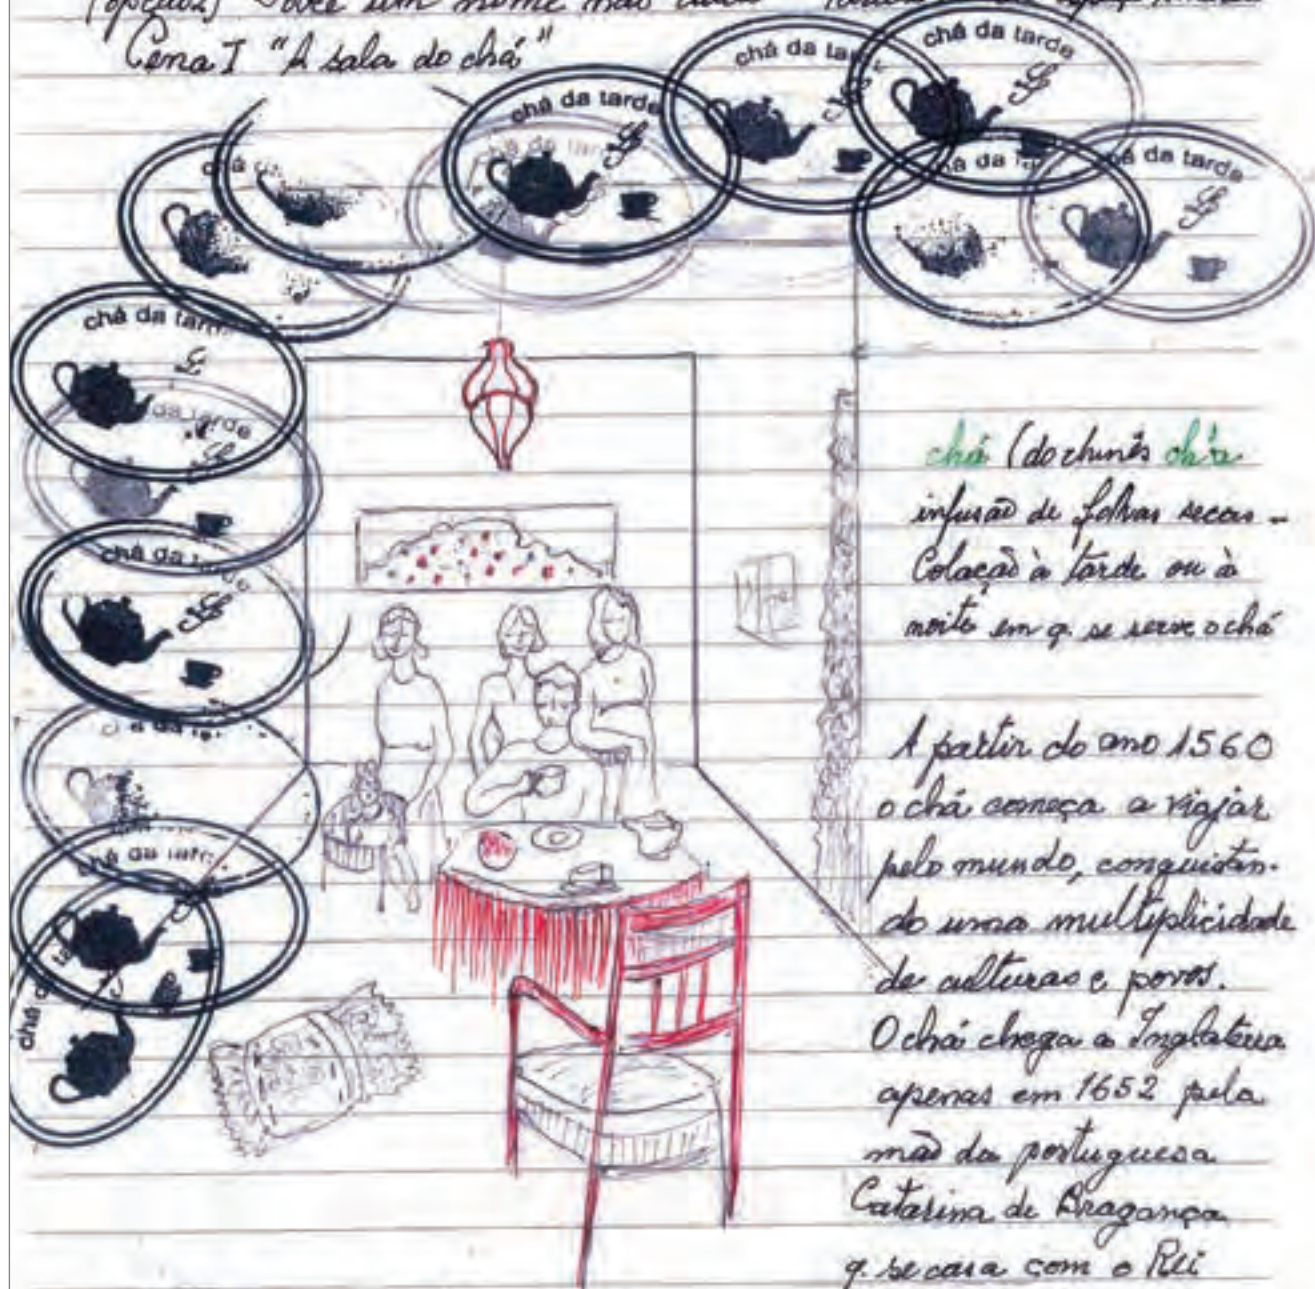 (opção2) Você um nome não
Cena I "A sala do chá"
chá da tarde
chá da tarde
chá da tarde
chá da tarde
chá da tarde
chá da tarde
chá da tarde
chá (do chinês
infusão de folhas secas -
Colação à tarde ou à
noite em q. se serve o chá
A partir do ano 1560
o chá começa a viajar
pelo mundo, conquistan-
do uma multiplicidade
de culturas e povos.
O chá chega a Inglaterra
apenas em 1652 pela
mão da portuguesa
Catarina de Bragança
q. se casa com o Rei